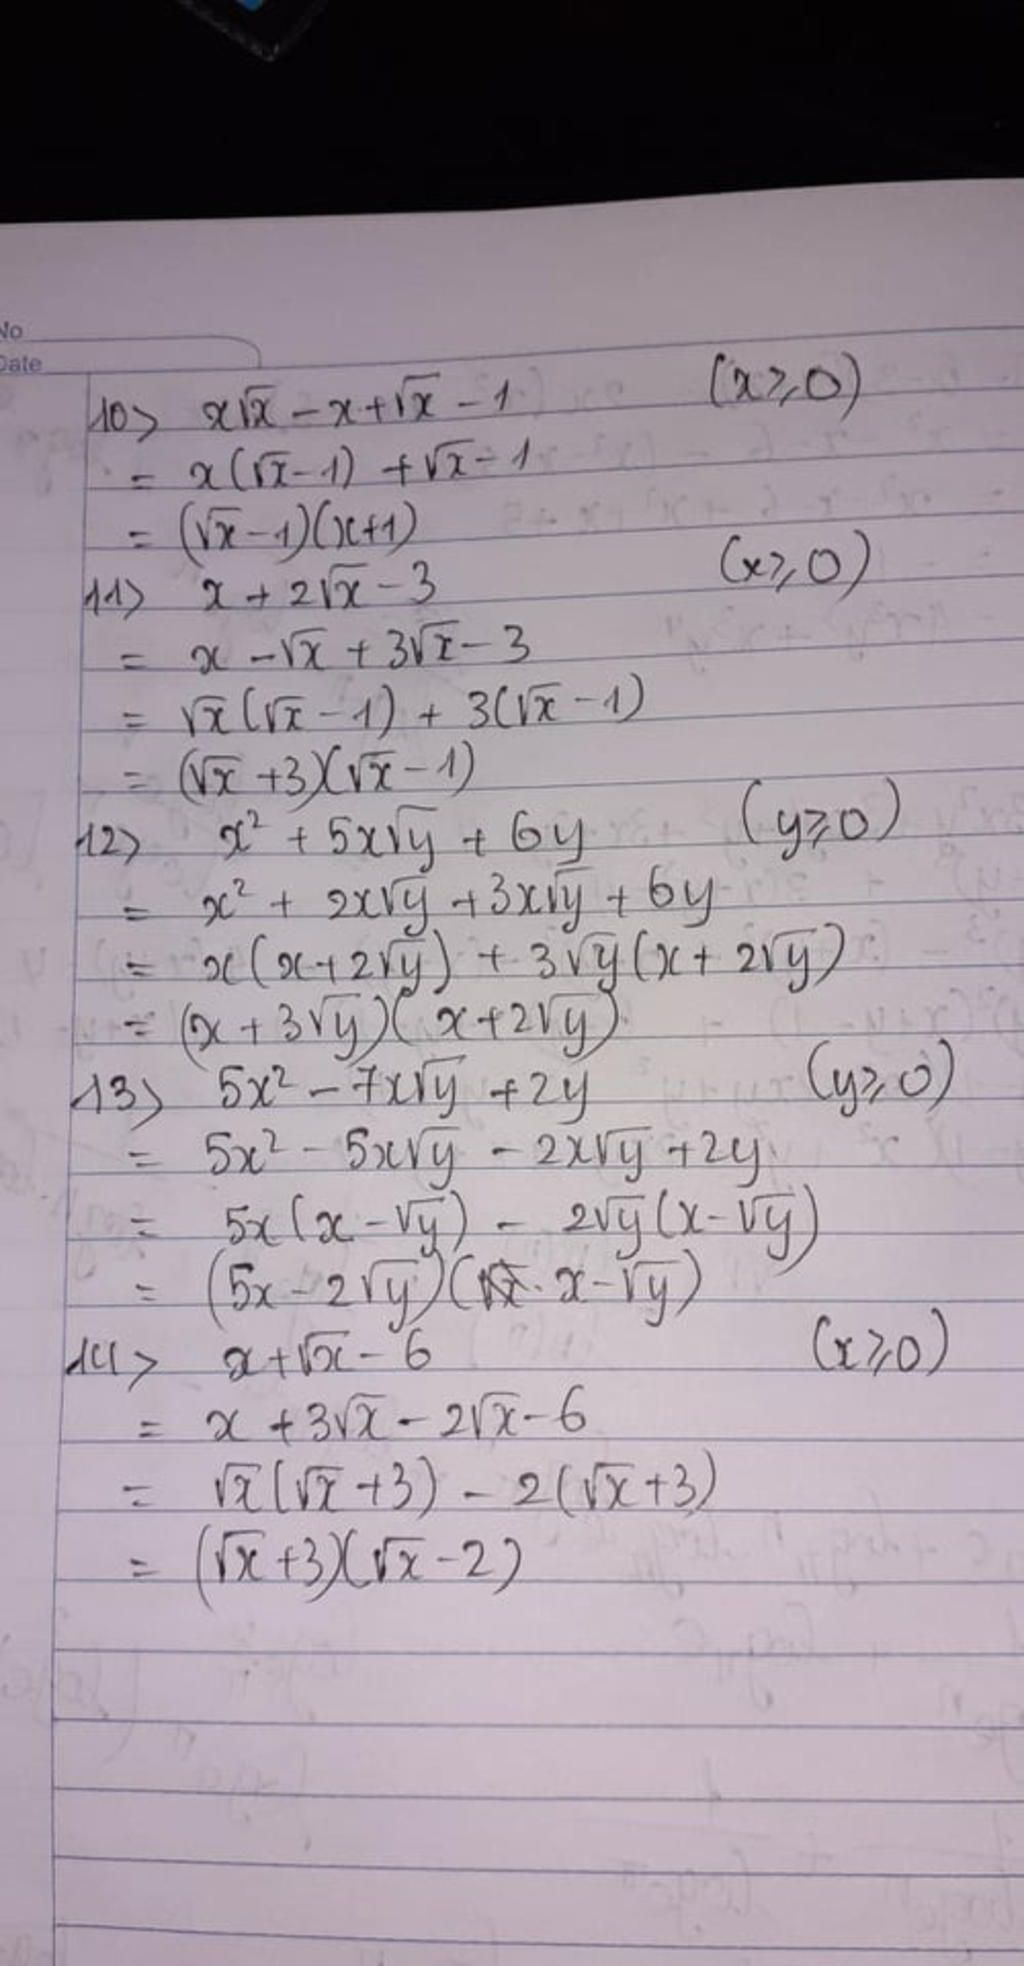 No
Date
10> x√x - x + √x - 1 (x ⩾ 0)
= x(√x - 1) + √x - 1
= (√x - 1)(x + 1)
11> x + 2√x - 3 (x ⩾ 0)
= x - √x + 3√x - 3
= √x(√x - 1) + 3(√x - 1)
= (√x + 3)(√x - 1)
12> x² + 5x√y + 6y (y ⩾ 0)
= x² + 2x√y + 3x√y + 6y
= x(x + 2√y) + 3√y(x + 2√y)
= (x + 3√y)(x + 2√y)
13> 5x² - 7x√y + 2y (y ⩾ 0)
= 5x² - 5x√y - 2x√y + 2y
= 5x(x - √y) - 2√y(x - √y)
= (5x - 2√y)(x - √y)
14> x + √x - 6 (x ⩾ 0)
= x + 3√x - 2√x - 6
= √x(√x + 3) - 2(√x + 3)
= (√x + 3)(√x - 2)